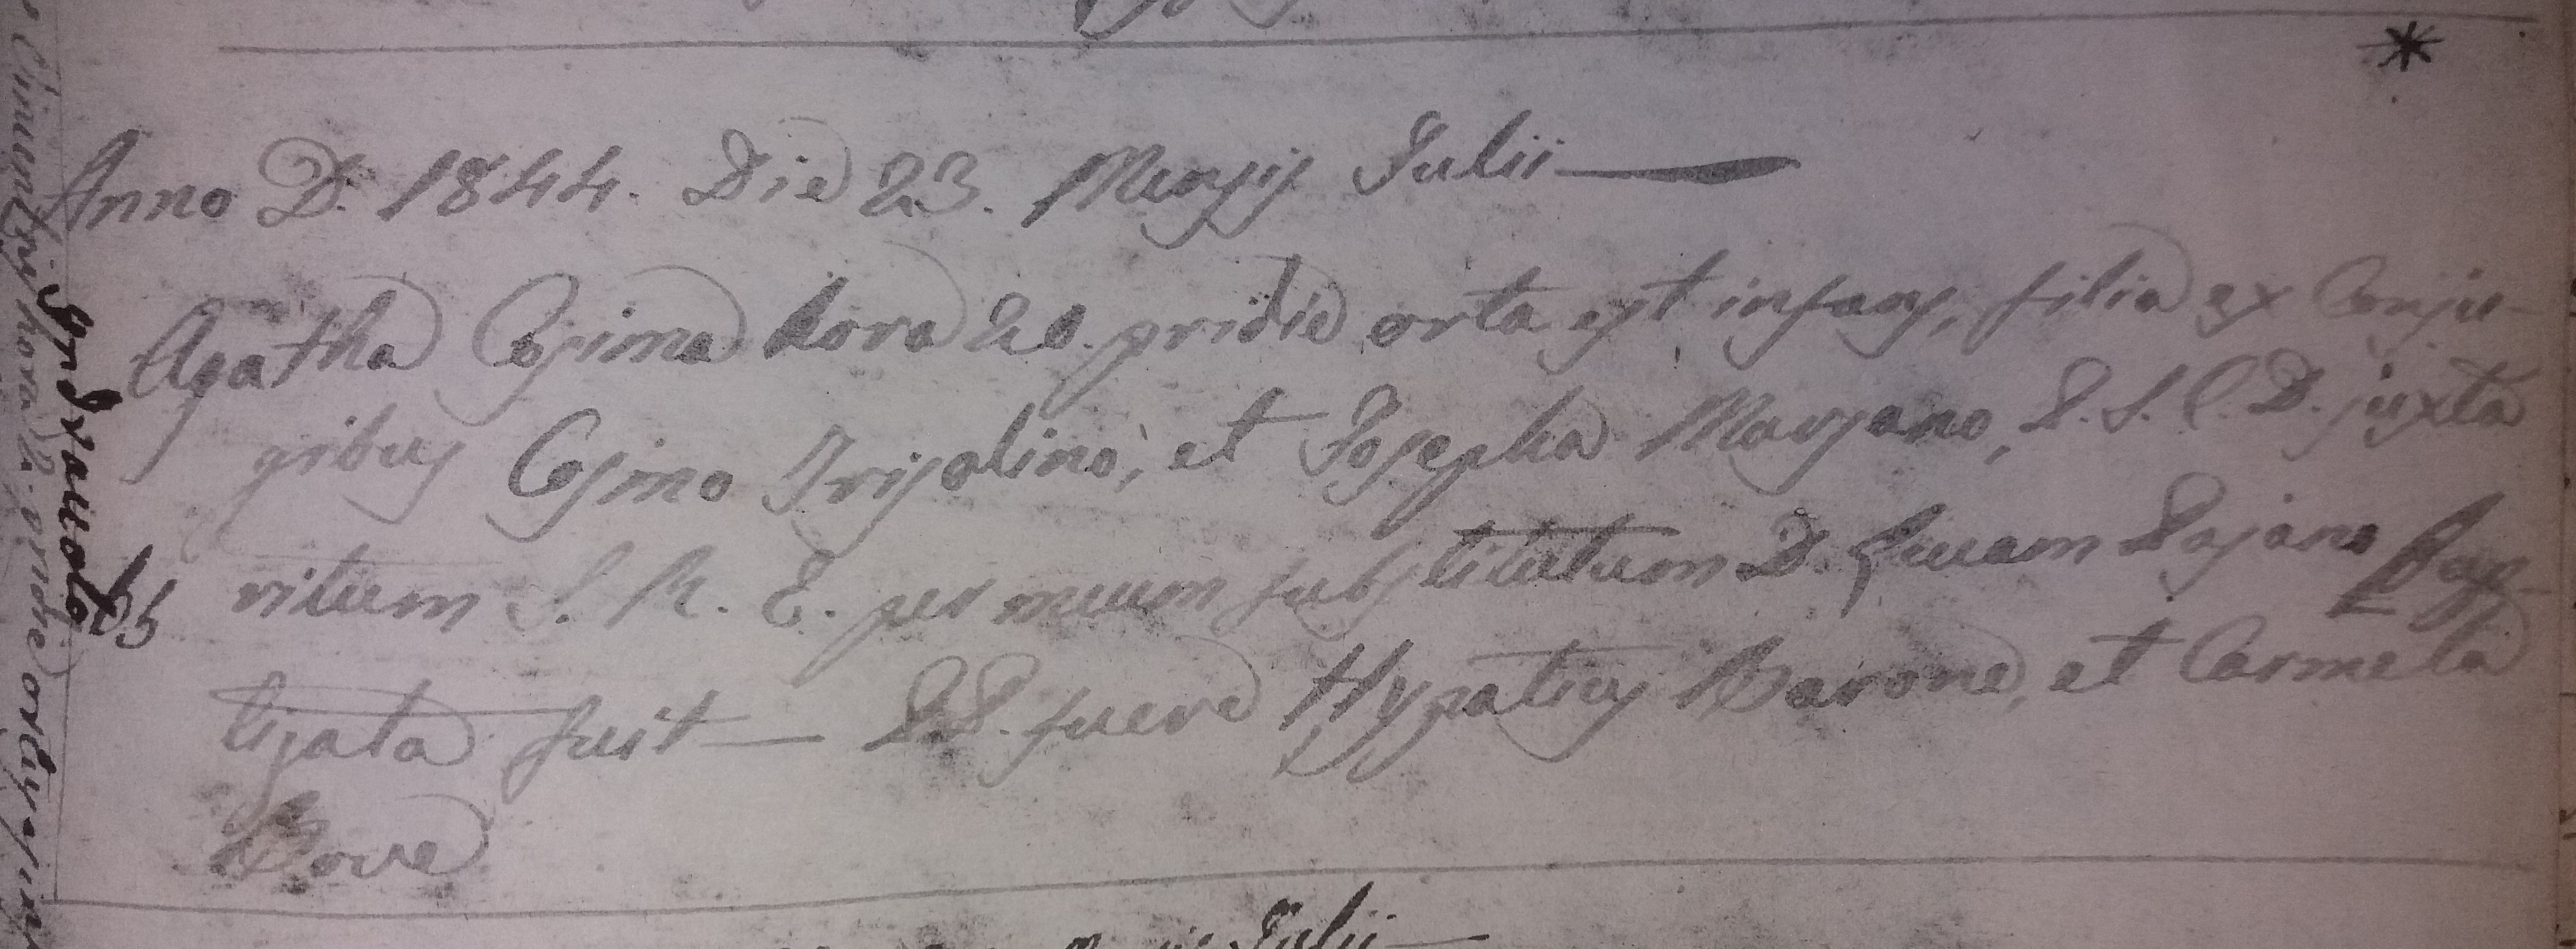 Anno D. 1844. Die 23. Mensis Julii
Agatha Cosima hora 20. pridie orta est infans, filia ex Conju-
gibus Cosmo Trisolino, et Josepha Marzano, P. S. C. D. juxta
ritum S. R. E. per meum substitutum D. Lucam Pajano Bap-
tizata fuit — PP. fuere Hypatius Barone, et Carmela
Bove
Julii